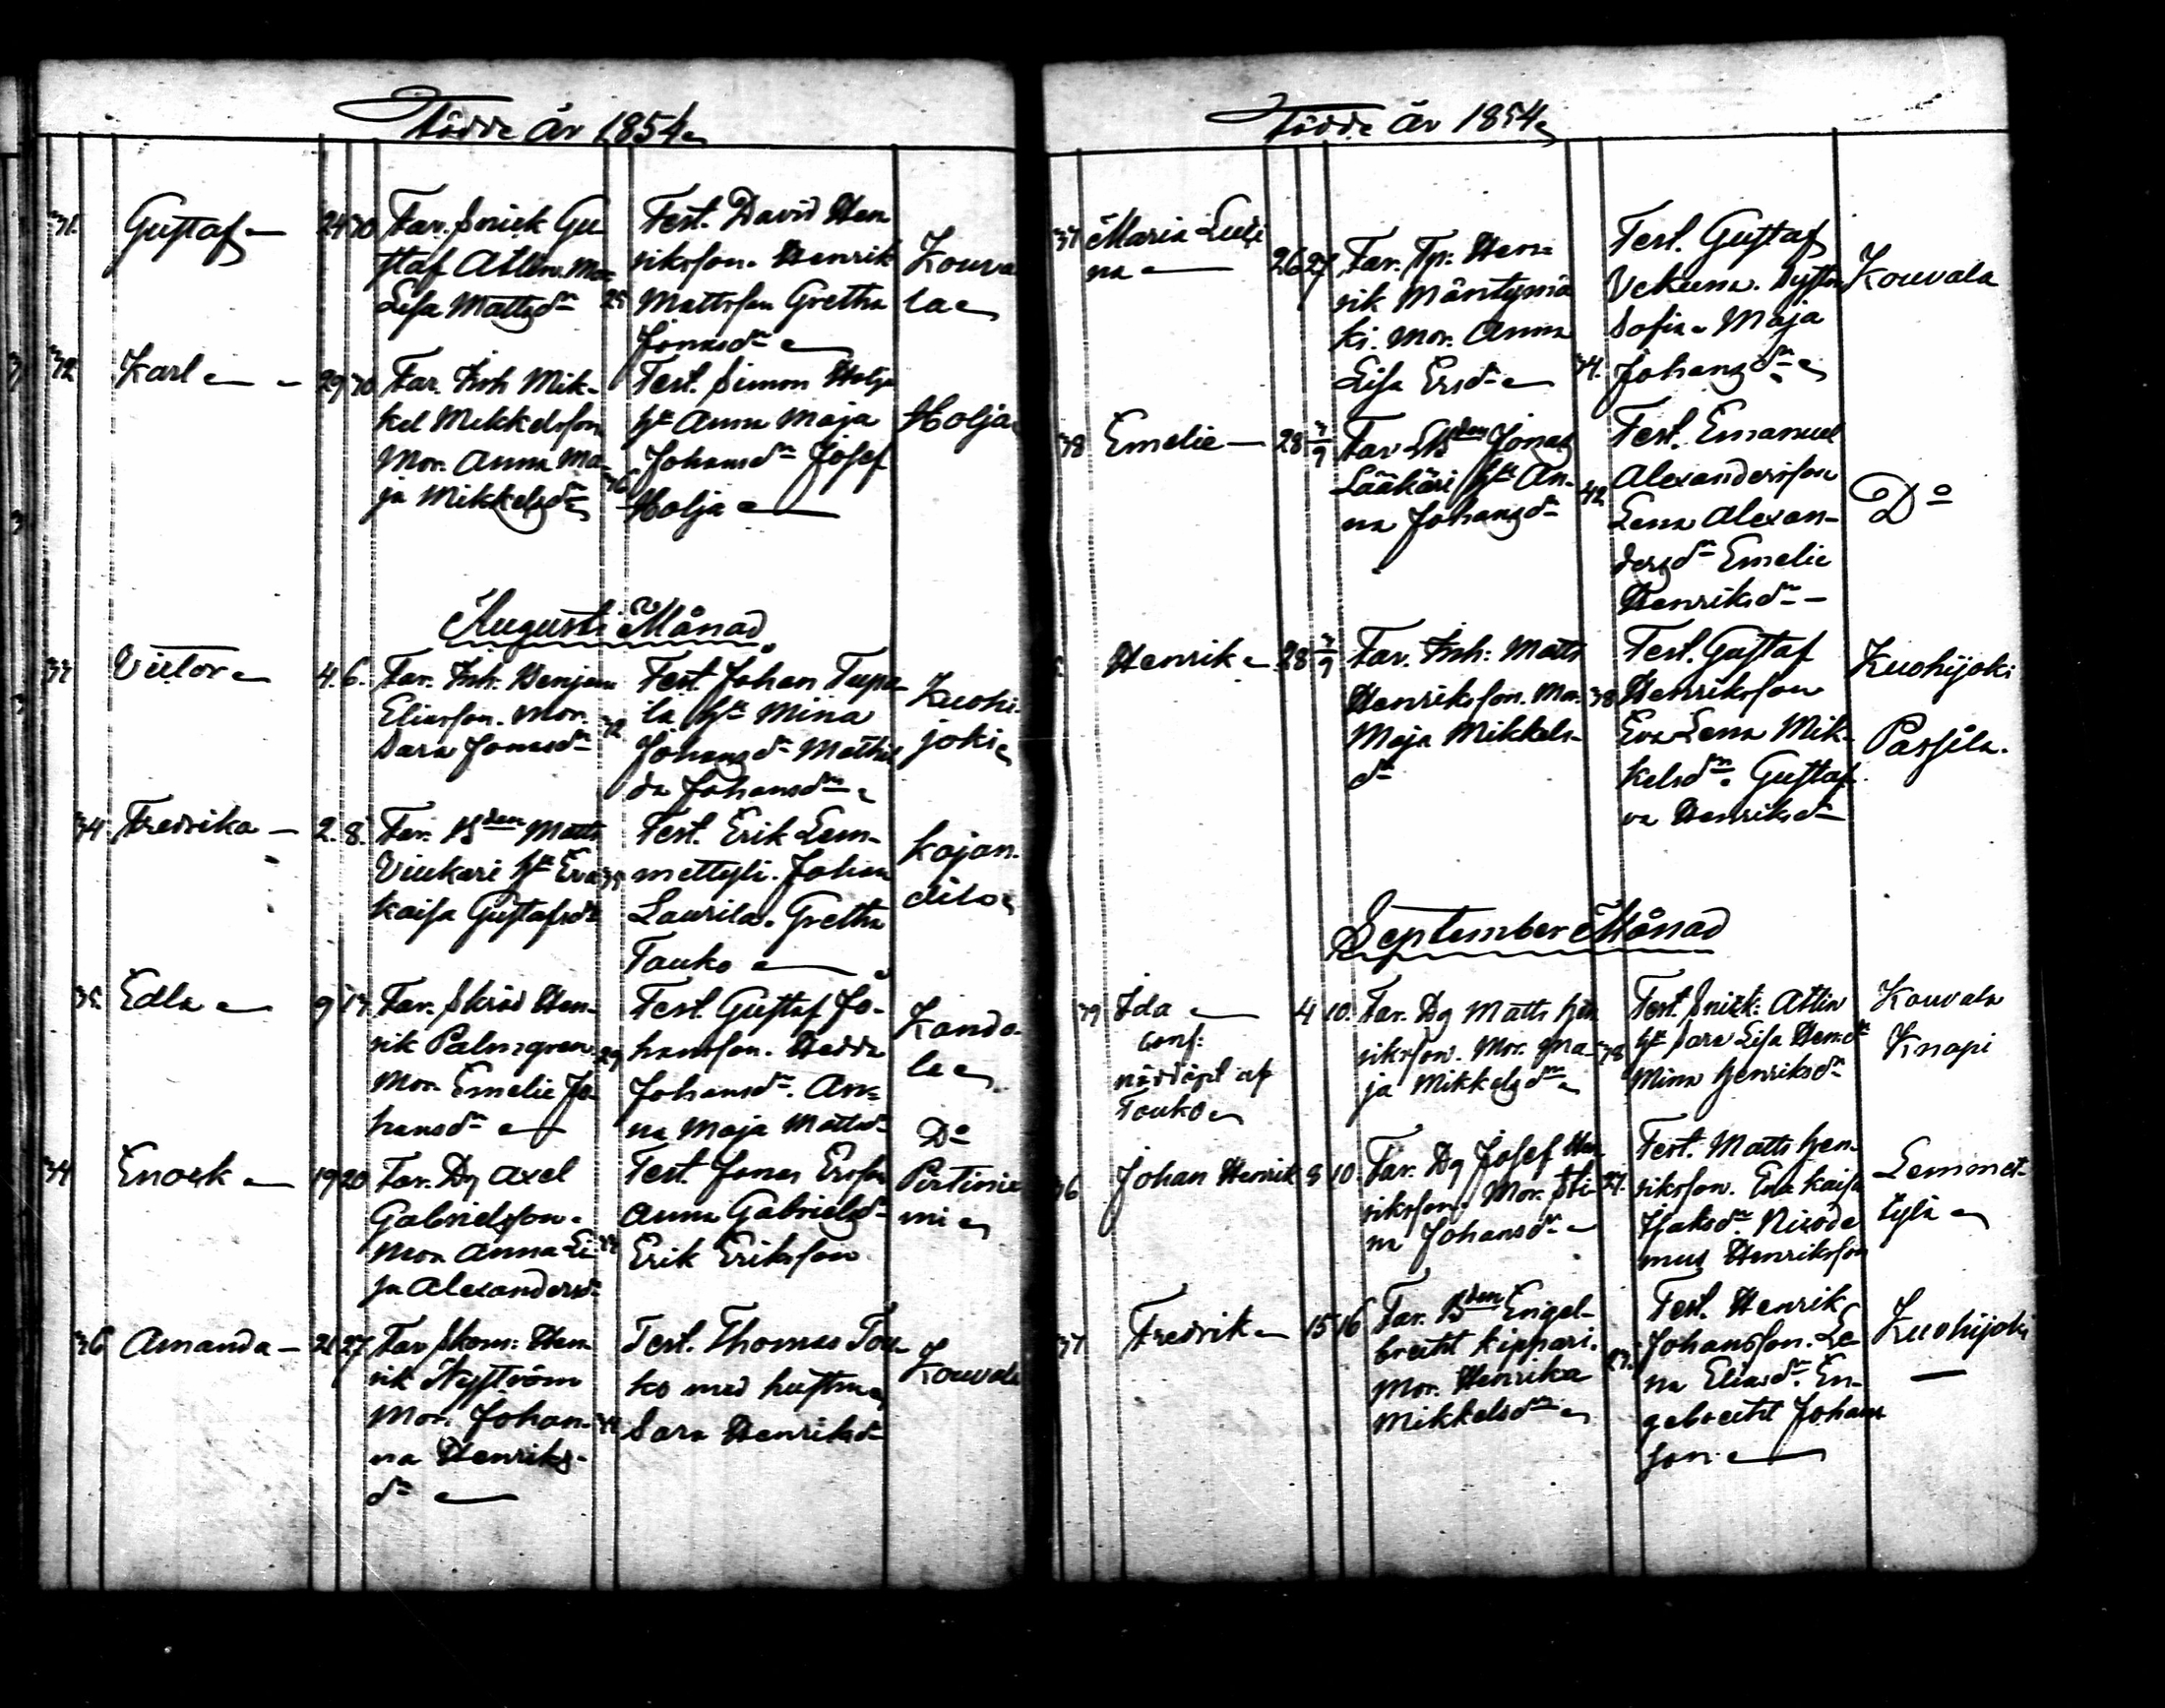 Födde år 1854
31. Gustaf 24 30 Far. Snick Gu
staf Atlin. Mor
Lisa Mattsdr 25
Test. David Hen
riksson. Henrik
Mattsson Gretha
Jonasdr
Kouva
la
32 Karl 29 30 Far. Inh Mik-
kel Mikkelsson
Mor. Anna Ma-
ja Mikkelsdr 36
Test. Simon Holja
hu Anna Maja
Johansdr Josef
Holja
Holja
Augusti Månad
33 Victor 4. 6. Far. Inh. Benjam
Eliasson. Mor.
Sara Jonasdr 32
Test. Johan Tupa
la hu Mina
Johansdr Mathil
da Johansdr
Kuohi-
joki
34 Fredrika 2. 8. Far. Bden Matts
Viukari hu Eva
Kaisa Gustafsdr 35
Test. Erik Lem-
mettyli. Johan
Laurila. Gretha
Tauko
Kajan-
dilo
35. Edla 9 13. Far. Skräd Hen-
rik Palmgren
Mor. Emelie Jo-
hansdr 29
Test Gustaf Jo-
hansson. Hedda
Johansdr. An-
na Maja Mattsdr
Kando-
la
34 Enock 19 20 Far. Dg Axel
Gabrielsson.
Mor Anna Li
sa Alexandersdr
Test Jonas Ersson
Anna Gabrielsdr
Erik Eriksson
Do
Pirtinie
mi
36 Amanda 26 27 Far Skom: Hen
rik Nyström
Mor. Johan-
na Henriks-
dr 44
Test. Thomas Tou
ko med hustru
Sara Henriksdr
Kouvala
Födde år 1854
37 Maria Lovi
na 26 27 Far. Tp: Hen-
rik Mäntymä
ki. Mor. Anna
Lisa Ersdr 34.
Test. Gustaf
Sofia Maja
Johansdr
Kouvala
38 Emelie 28 3/9 Far Jonas
Lääkäri hu An-
na Johansdr 42
Test. Emanuel
Alexandersson
Lena Alexan-
dersdr Emelie
Henriksdr
Do
Henrik 28 3/9 Far. Inh: Matts
Henriksson. Mor. 38
Maja Mikkels-
dr
Test. Gustaf
Henriksson
Eva Lena Mik-
kelsdr. Gustaf
va Henriksdr
Kuohijoki
Passila.
September Månad
39 Ida 4 10. Far. Dg Matts Hen
riksson. Mor. Ma- 38
ja Mikkelsdr
conf:
nöddöpt af
Touko
Test. Snick: Atlin
hu Sara Lisa Hendr
Mina Henriksdr
Kouvala
Knapi
36 Johan Henrik 8 10. Far. Dg Josef Hen
riksson. Mor. Sti- 27.
na Johansdr
Test. Matts Hen-
riksson. Eva Kaisa
Isaksdr Nicode
mus Henriksson
Lemmet-
tylä
37 Fredrik 15 16 Far. Bden Engel-
brecht Kippari.
Mor. Henrika
Mikkelsdr
Test. Henrik
Johansson. Le
na Eliasdr. En-
gebrecht Johans
son
Kuohijoki